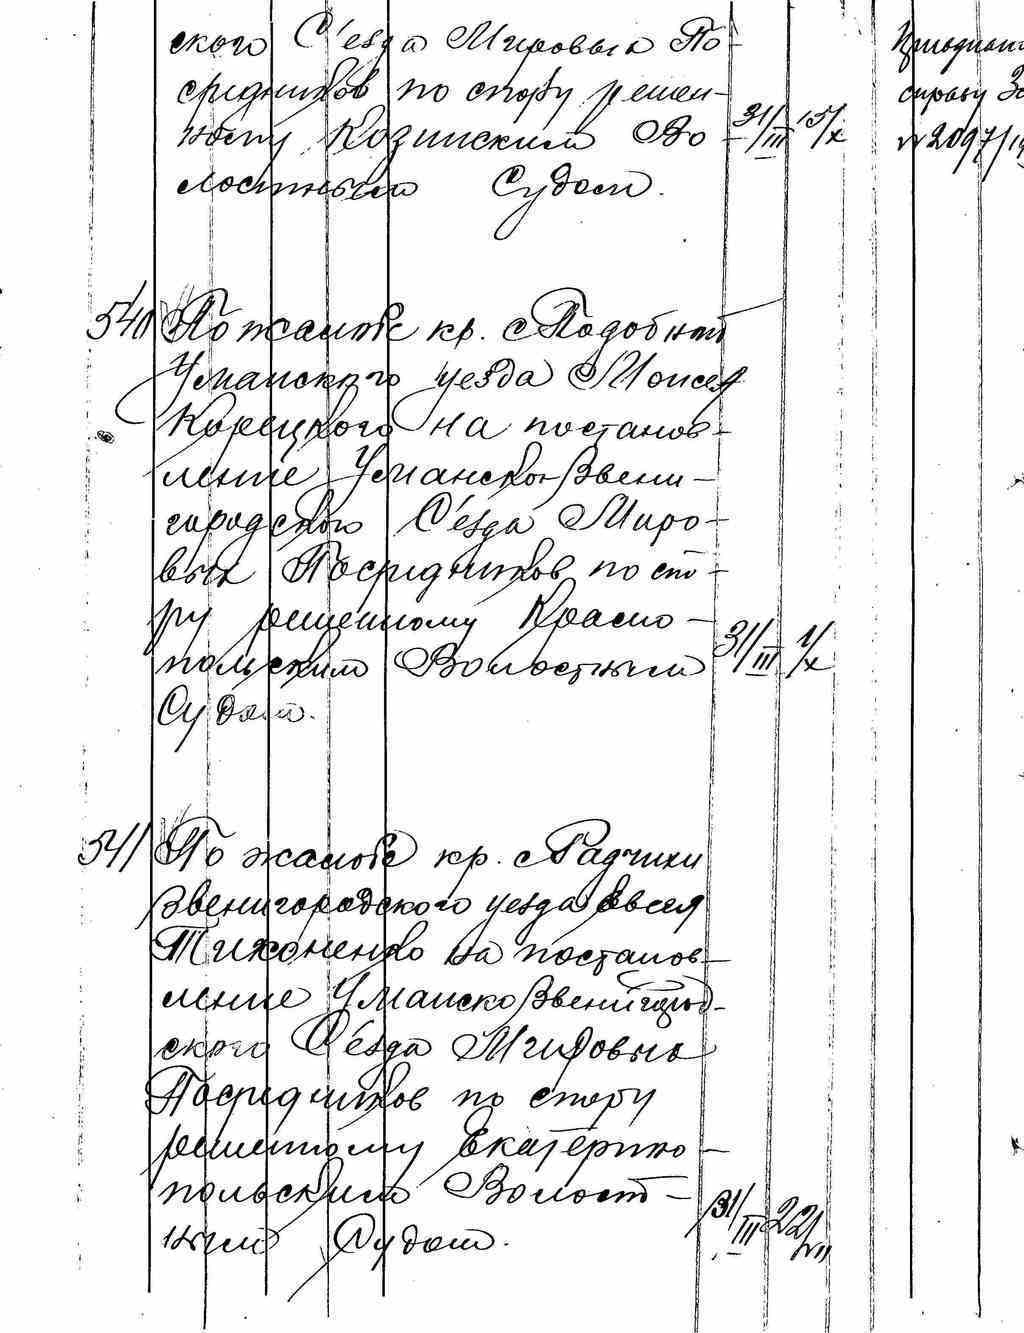 ского С'езда Мировых По-
средников по спору решен-
ному Козинским Во 31/III 15/X
лостным Судом.
справу
№ 2097/
540 По жалобе кр. с Подобной
Уманского уезда Моисея
Корецкого на постанов-
ление Уманско-Звени-
городского С'езда Миро-
вых Посредников по спо-
ру решенному Красно-
польским Волостным 31/III 1/X
Судом.
541 По жалобе кр. с Радчихи
Звенигородского уезда Евсея
Тихоненко на постанов-
ление Уманско Звенигород-
ского С'езда Мировых
Посредников по спору
решенному Екатерино-
польским Волост-
ным Судом. 31/III 22/VII